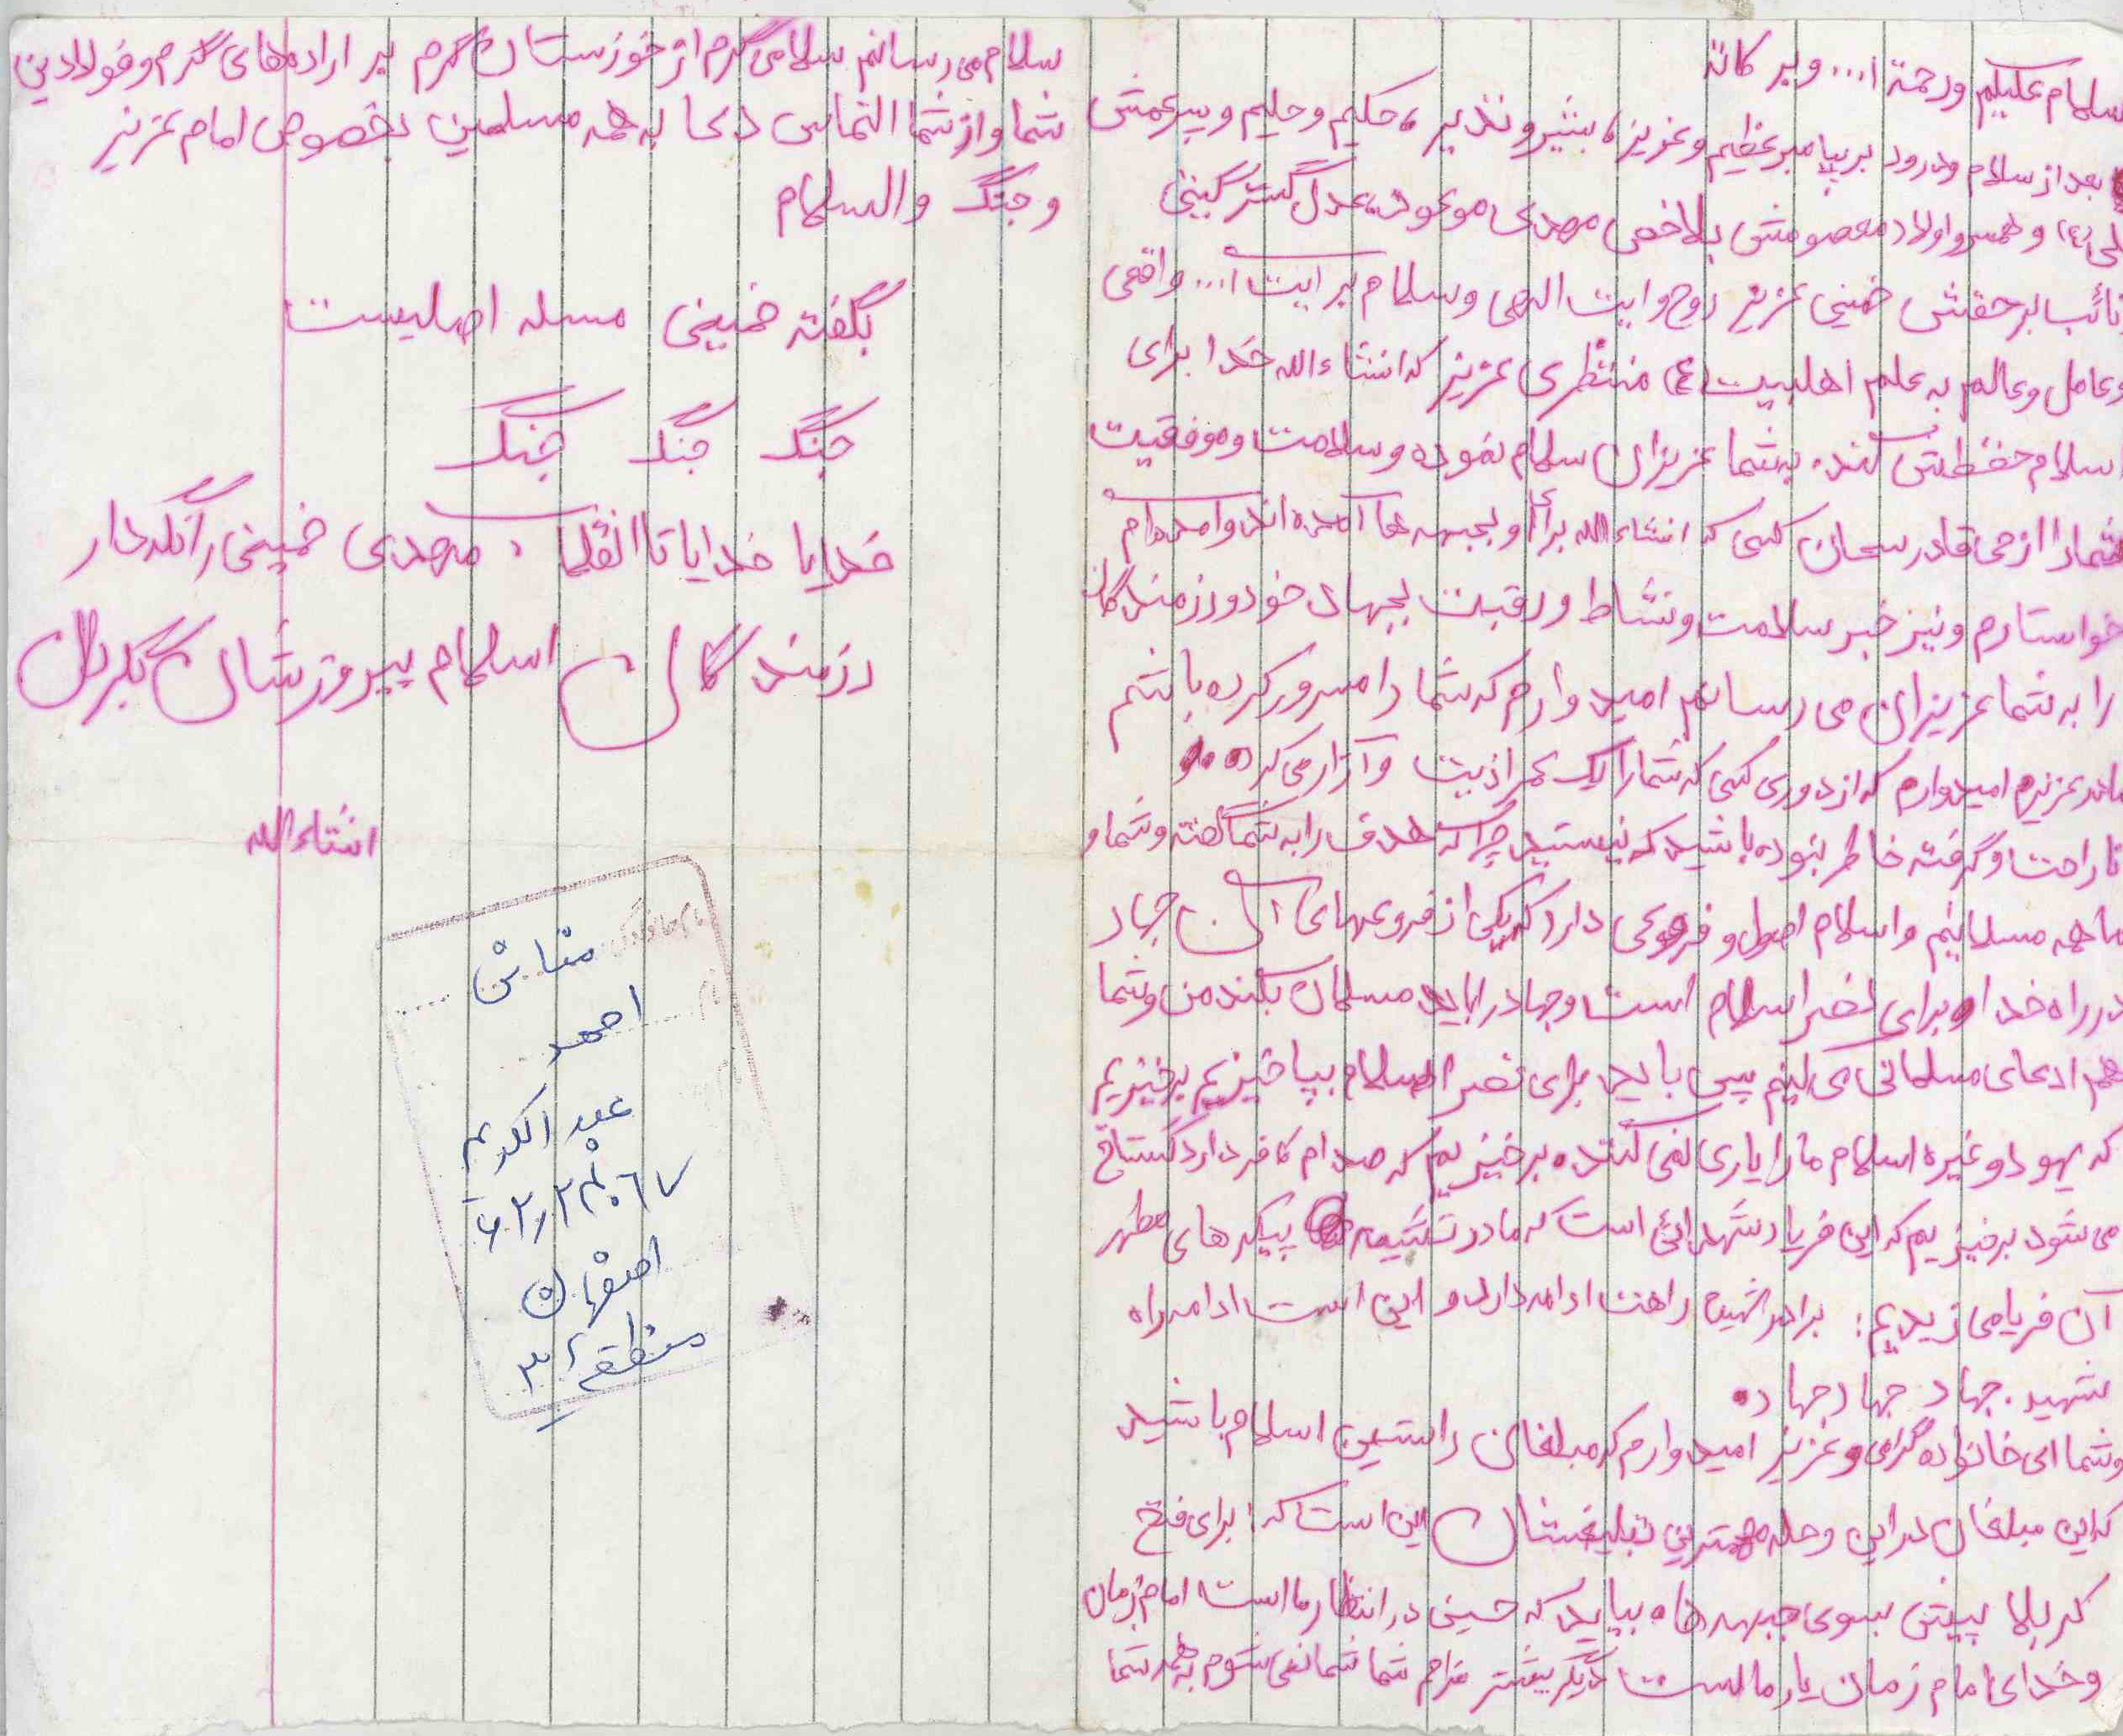 سلام علیکم ورحمة ا... وبرکاته
بعد از سلام ودرود بر پیامبر عظیم وعزیز، بشیر و نذیر، حکیم وحلیم و پسرعمش
علی (ع) و همسر و اولاد معصومش بلاخص مهدی موعود، عدل گستر گیتی
نائب برحقش خمینی عزیز روح و ایت الهی وسلام بر ایت ا... واقعی
وعامل وعالم به علم اهلبیت (ع) منتظری عزیز که انشاءالله خدا برای
اسلام حفظش کند. به شما عزیزان سلام نموده وسلامت وموفقیت
شما را از حی قادر سبحان کسی که انشاءالله برای او بجبهه ها آمده اند وآمده ام
خواستارم ونیز خبر سلامت ونشاط ورقبت بجهاد خود ورزمندگان
را به شما عزیزان می رسانم امید وارم که شما را مسرور کرده باشم
مادر عزیزم امیدوارم که از دوری کسی که شما را یک عمر اذیت و آزار می کرده و
ناراحت و گرفته خاطر نبوده باشید که نیستید چرا که هدف را به شما گفته وشما و
ما همه مسلمانیم واسلام اصول و فروعی دارد که یکی از فروعهای آن جهاد
در راه خدا و برای نصر اسلام است وجهاد را باید مسلمان بکند من وشما
هم ادعای مسلمانی می کنیم پس باید برای نصر اسلام بپا خیزیم برخیزیم
که یهود و غیره اسلام ما را یاری نمی کنند. برخیزیم که صدام کافر دارد گستاخ
می شود برخیزیم که این فریاد شهدائی است که ما در تشییع پیکرهای مطهر
آن فریامی زدیم: برادر شهید راهت ادامه دارد و این است ادامه راه
شهید. جهاد جهاد جهاد.
وشما ای خانواده گرامی و عزیز امیدوارم که مبلغان راستین اسلام باشید
که این مبلغان در این وحله مهمترین تبلیغشان این است که: برای فتح
کربلا پیش بسوی جبهه ها، بیاید که حسین در انتظار ما است امام زمان
وخدای امام زمان یار ماست دیگر بیشتر مزاحم شما نمی شوم به همه شما
سلام می رسانم سلامی گرم از خوزستان گرم بر اراده های گرم و فولادین
شما و از شما التماس دعا به همه مسلمین بخصوص امام عزیز
و جنگ والسلام
بگفته خمینی مسله اصلیست
جنگ جنگ جنگ
خدایا خدایا تا انقلاب مهدی خمینی را نگهدار
رزمندگان اسلام پیروزشان بگردان
انشاءالله
نام خانوادگی متقا
نام احمد
عبدالکریم
اصفهان
منطقه